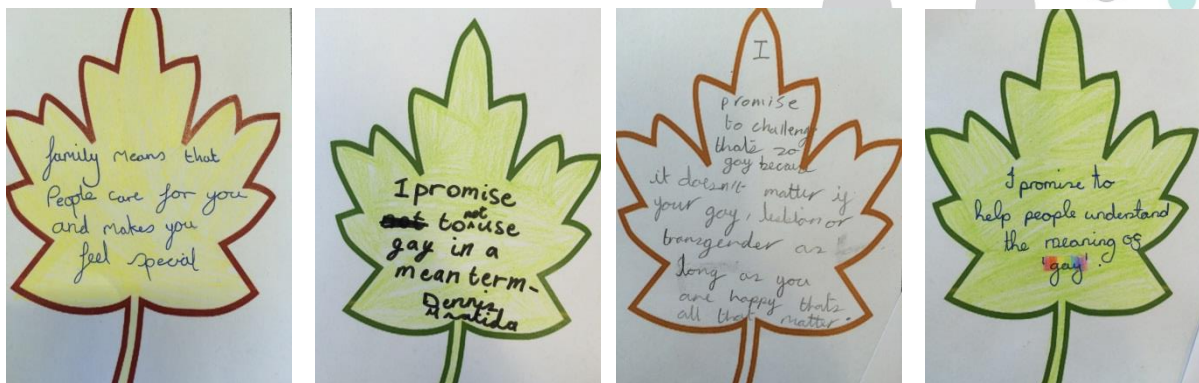 family means that
People care for you
and makes you
feel special
I promise
to not use
gay in a
mean term-
Dennis
I
promise
to challeng
that's so
gay becaus
it doesn't matter if
your gay, lesbian or
transgender as
long as you
are happy thats
all that matter.
I promise to
help people understand
the meaning of
'gay'.